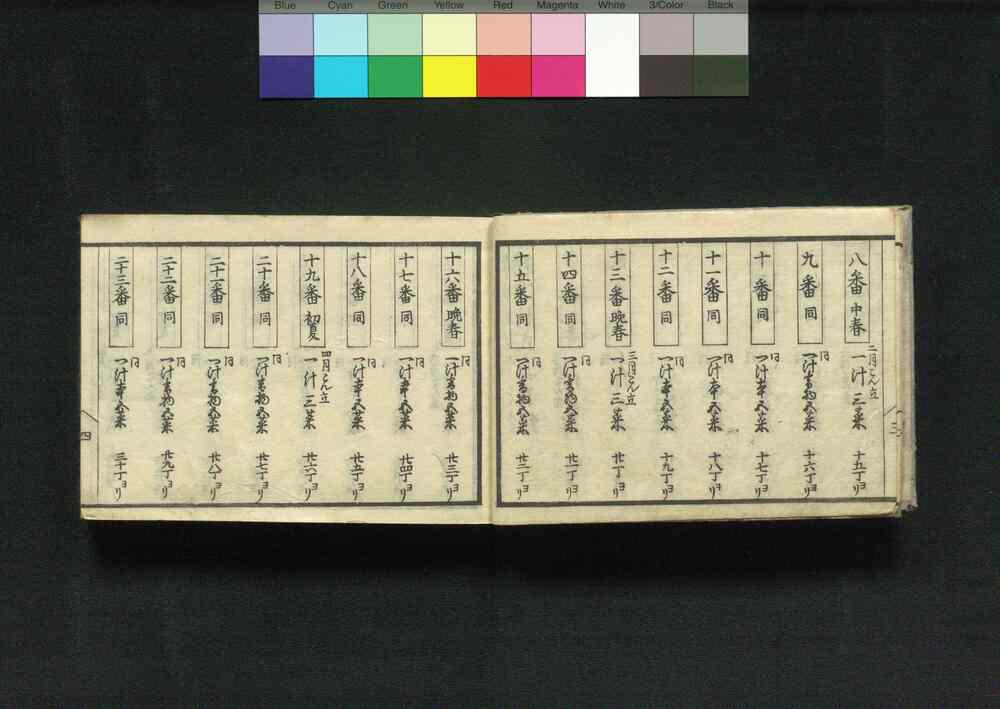 Blue Cyan Green Yellow Red Magenta White 3/Color Black
八番 中春 二月こん立 一汁三菜 十五丁ヨリ
九番 同 同 一汁 五菜 十六丁ヨリ
十番 同 同 一汁 五菜 十七丁ヨリ
十一番 同 同 一汁 五菜 十八丁ヨリ
十二番 同 同 一汁 五菜 十九丁ヨリ
十三番 晩春 三月こん立 一汁三菜 廿丁ヨリ
十四番 同 同 一汁 五菜 廿一丁ヨリ
十五番 同 同 一汁 五菜 廿二丁ヨリ
三
十六番 晩春 同 一汁 五菜 廿三丁ヨリ
十七番 同 同 一汁 五菜 廿四丁ヨリ
十八番 同 同 一汁 五菜 廿五丁ヨリ
十九番 初夏 四月こん立 一汁三菜 廿六丁ヨリ
二十番 同 同 一汁 五菜 廿七丁ヨリ
二十一番 同 同 一汁 五菜 廿八丁ヨリ
二十二番 同 同 一汁 五菜 廿九丁ヨリ
二十三番 同 同 一汁 五菜 三十丁ヨリ
四